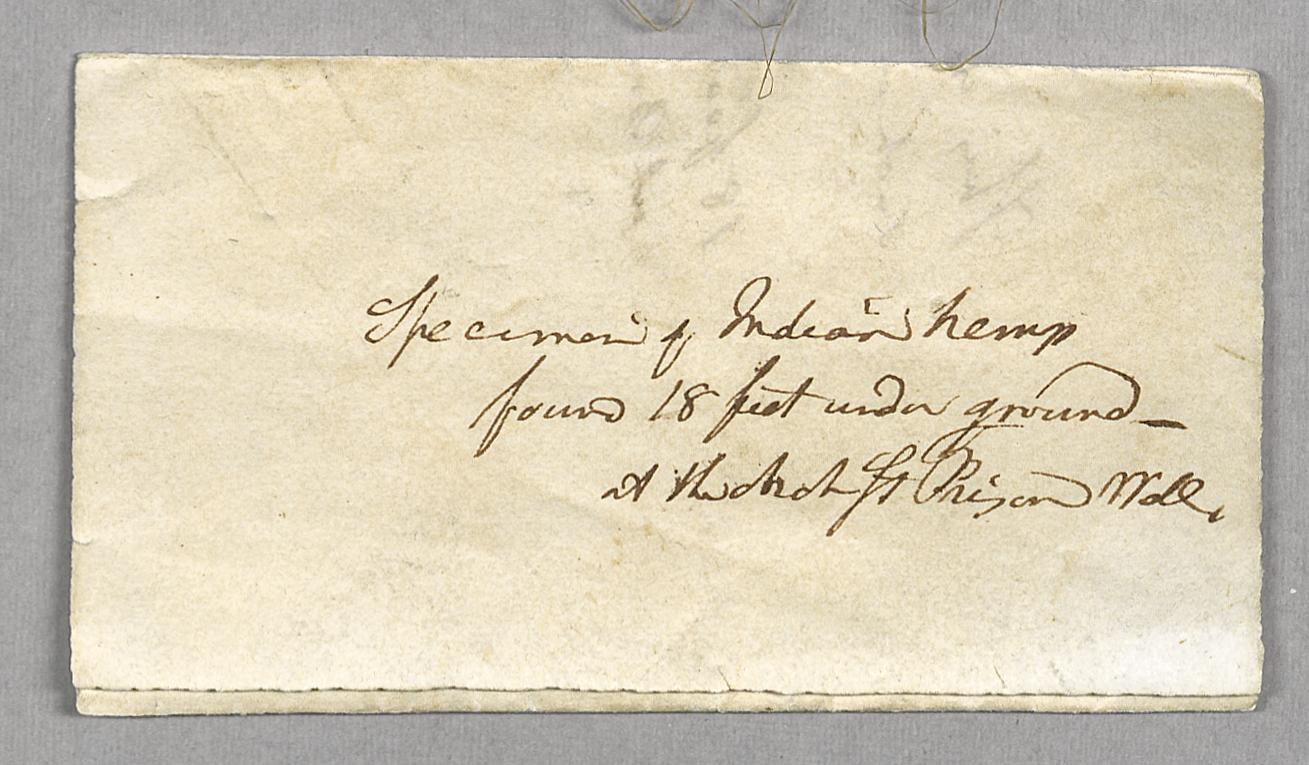 Specimen of Indian hemp
found 18 feet under ground –
at the Arch St Prison Wall.